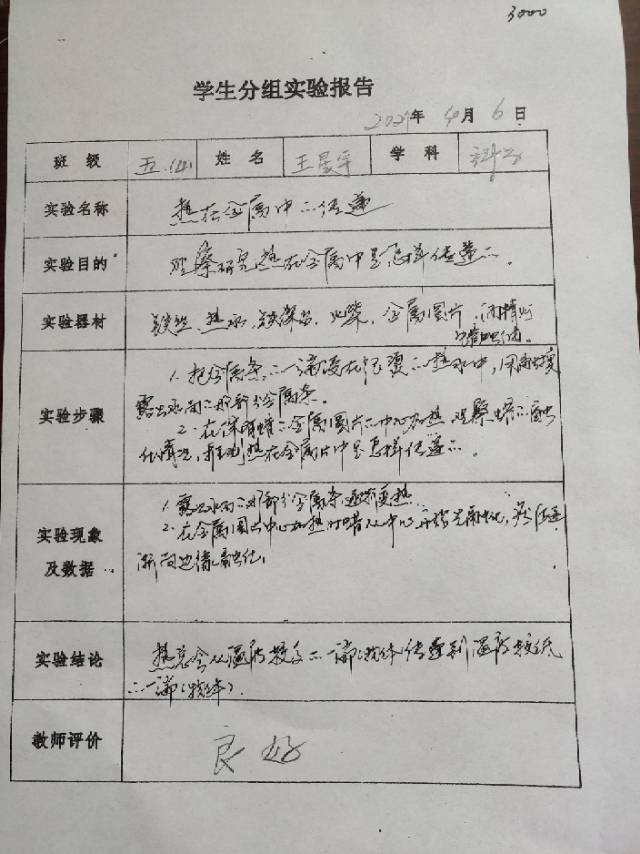 3000
学生分组实验报告
2021年10月6日
班级 五.(4) 姓名 王星宇 学科 科学
实验名称 热在金属中的传递
实验目的 观察研究热在金属中是怎样传递的。
实验器材 铁丝、热水、铁架台、火柴、金属圆片、酒精灯
蜡
实验步骤 1. 把金属条的一端浸在很烫的热水中,用
露出水面的那部分金属条。
2. 在涂有蜡的金属圆片的中心加热,观察蜡的融
化情况,推测热在金属片中是怎样传递的。
实验现象及数据 1. 露出水面的那部分金属条逐渐变热
2. 在金属圆片中心加热时蜡从中心开始先融化,然后逐
渐向边缘融化。
实验结论 热总会从温度较高的一端(物体)传递到温度较低
的一端(物体)。
教师评价 良好